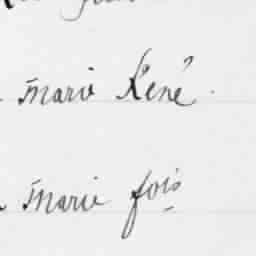 Marie René
Marie fois